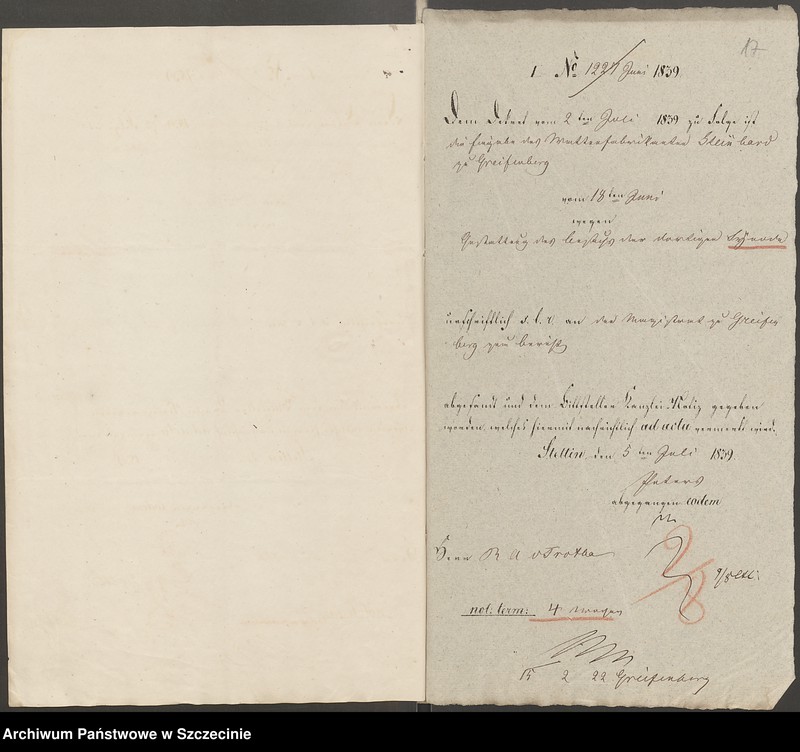 17
I No 1221 Juni 1839
Dem Dekret vom 2 ten Juli 1839 zu Folge ist
die Eingabe des Wattenfabrikanten Steinhard
zu Greifenberg
vom 18 ten Juni
wegen
Gestattung des Besuchs der dortigen Synode
urschriftlich s. l. r. an den Magistrat zu Greifen
berg zum Bericht
abgesandt und dem Bittsteller Kanzlei-Notiz gegeben
worden, welches hiermit nachrichtlich ad acta vermerkt wird.
Stettin, den 5 ten Juli 1839.
Peters
abgegangen eodem
Herrn R A v Trotha
9/8
not: term: 4 Wochen
15 2 22 Greifenberg
Archiwum Państwowe w Szczecinie